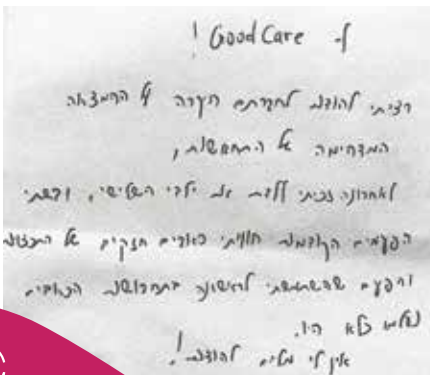 ל- Good Care !
רציתי להודות לחברתכם היקרה על ההמצאה
המדהימה של התחבושות,
לאחרונה זכיתי ללדת את ילדי השלישי, ובשתי
הפעמים הקודמות חוויתי כאבים חזקים של התכווצויות
והפעם שהשתמשתי לראשונה בתחבושת הכאבים
כלא היו.
אין לי מילים להודות!